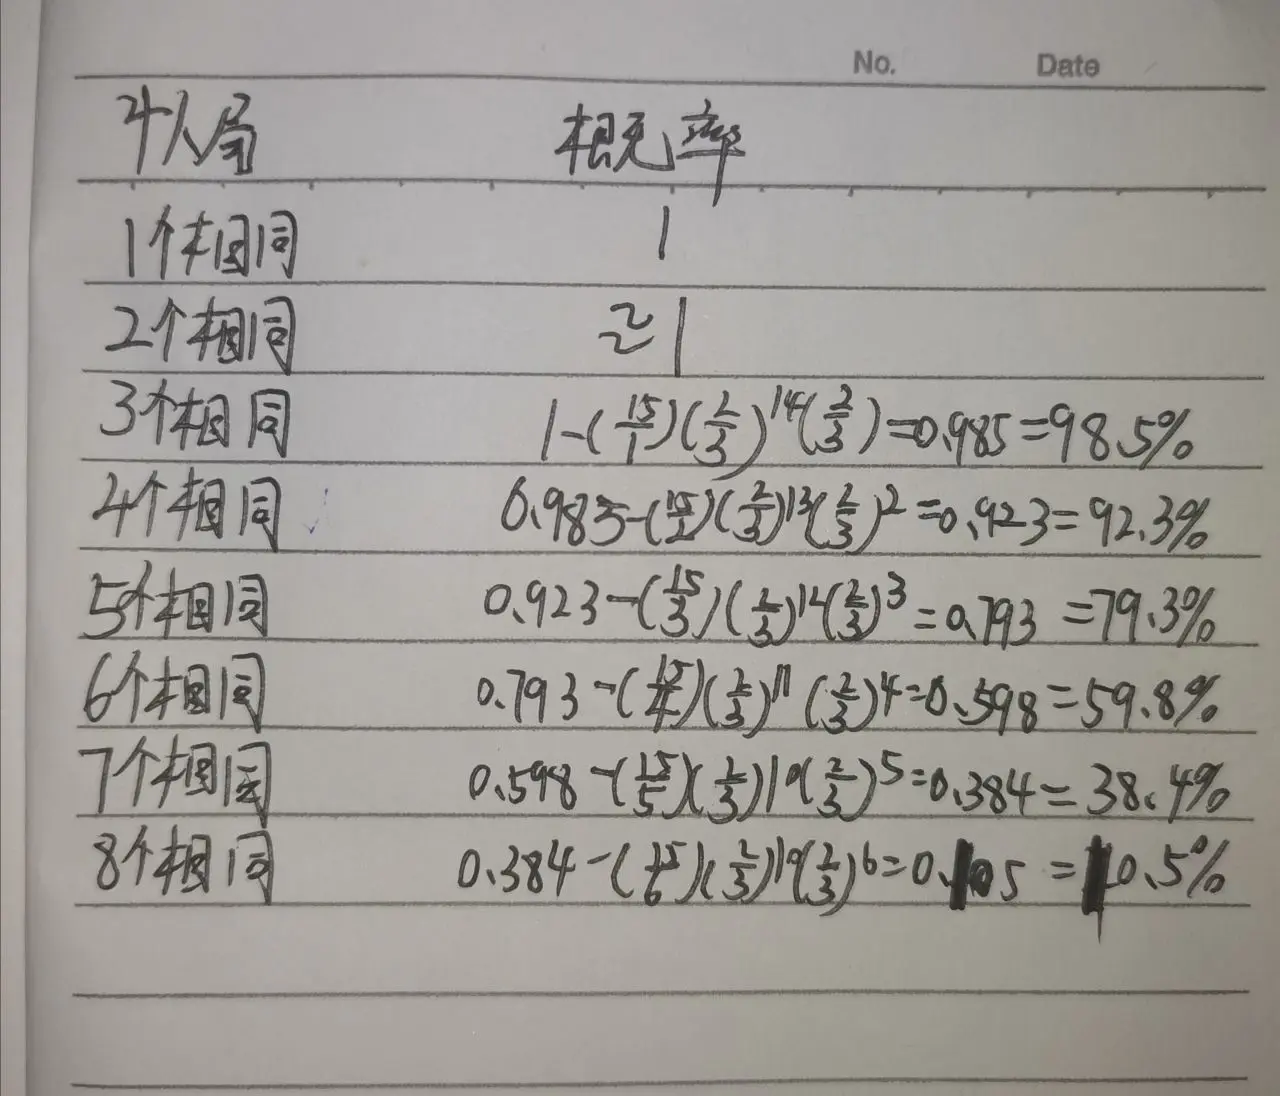 No. Date
4人局 概率
1个相同 1
2个相同 ≈1
3个相同 1-(15/1)(2/3)^14(2/3)=0.985=98.5%
4个相同 0.985-(15/2)(2/3)^13(2/3)^2=0.923=92.3%
5个相同 0.923-(15/3)(2/3)^12(2/3)^3=0.793=79.3%
6个相同 0.793-(15/4)(2/3)^11(2/3)^4=0.598=59.8%
7个相同 0.598-(15/5)(2/3)^10(2/3)^5=0.384=38.4%
8个相同 0.384-(15/6)(2/3)^9(2/3)^6=0.105=10.5%